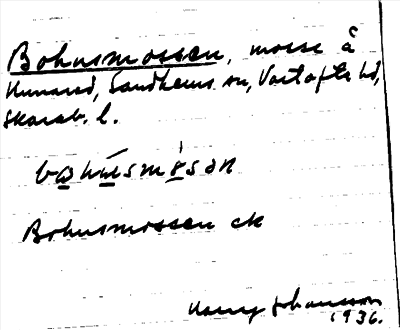 Bohusmossen, mosse å
Unnared, Sandhems sn, Vartofta hd,
Skarab. l.
bo̲hu̲smo̲sən
Bohusmossen ek
Harry Johansson
1936.